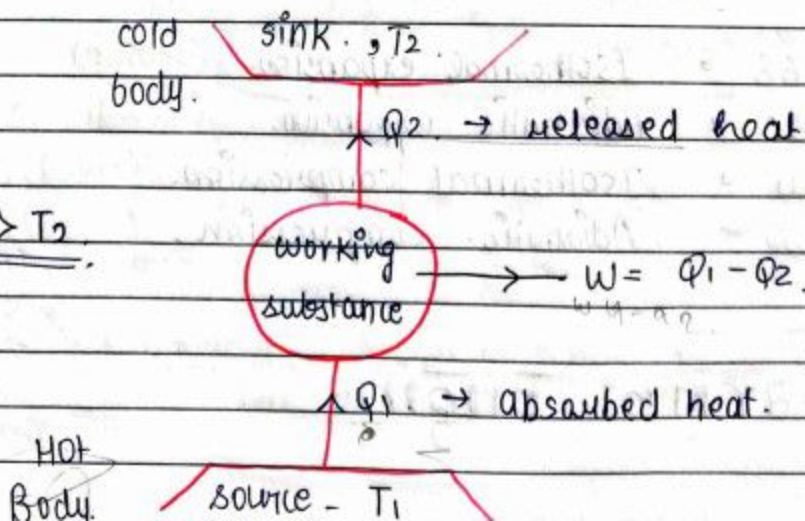 cold sink. , T2
body.
Q2. → released heat
> T2.
working
substance
W = Q1 - Q2.
Q1 → absorbed heat.
Hot
Body.
source - T1